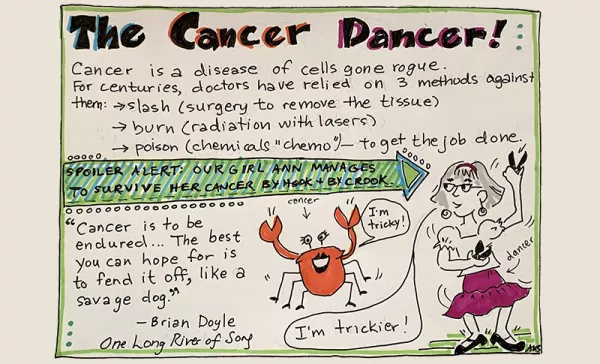 The Cancer Dancer!
Cancer is a disease of cells gone rogue.
For centuries, doctors have relied on 3 methods against
them: → slash (surgery to remove the tissue)
→ burn (radiation with lasers)
→ poison (chemicals "chemo") — to get the job done.
SPOILER ALERT: OUR GIRL ANN MANAGES
TO SURVIVE HER CANCER BY HOOK + BY CROOK.
"Cancer is to be
endured... The best
you can hope for is
to fend it off, like a
savage dog."
— Brian Doyle
One Long River of Song
cancer
I'm
tricky!
I'm trickier!
dancer